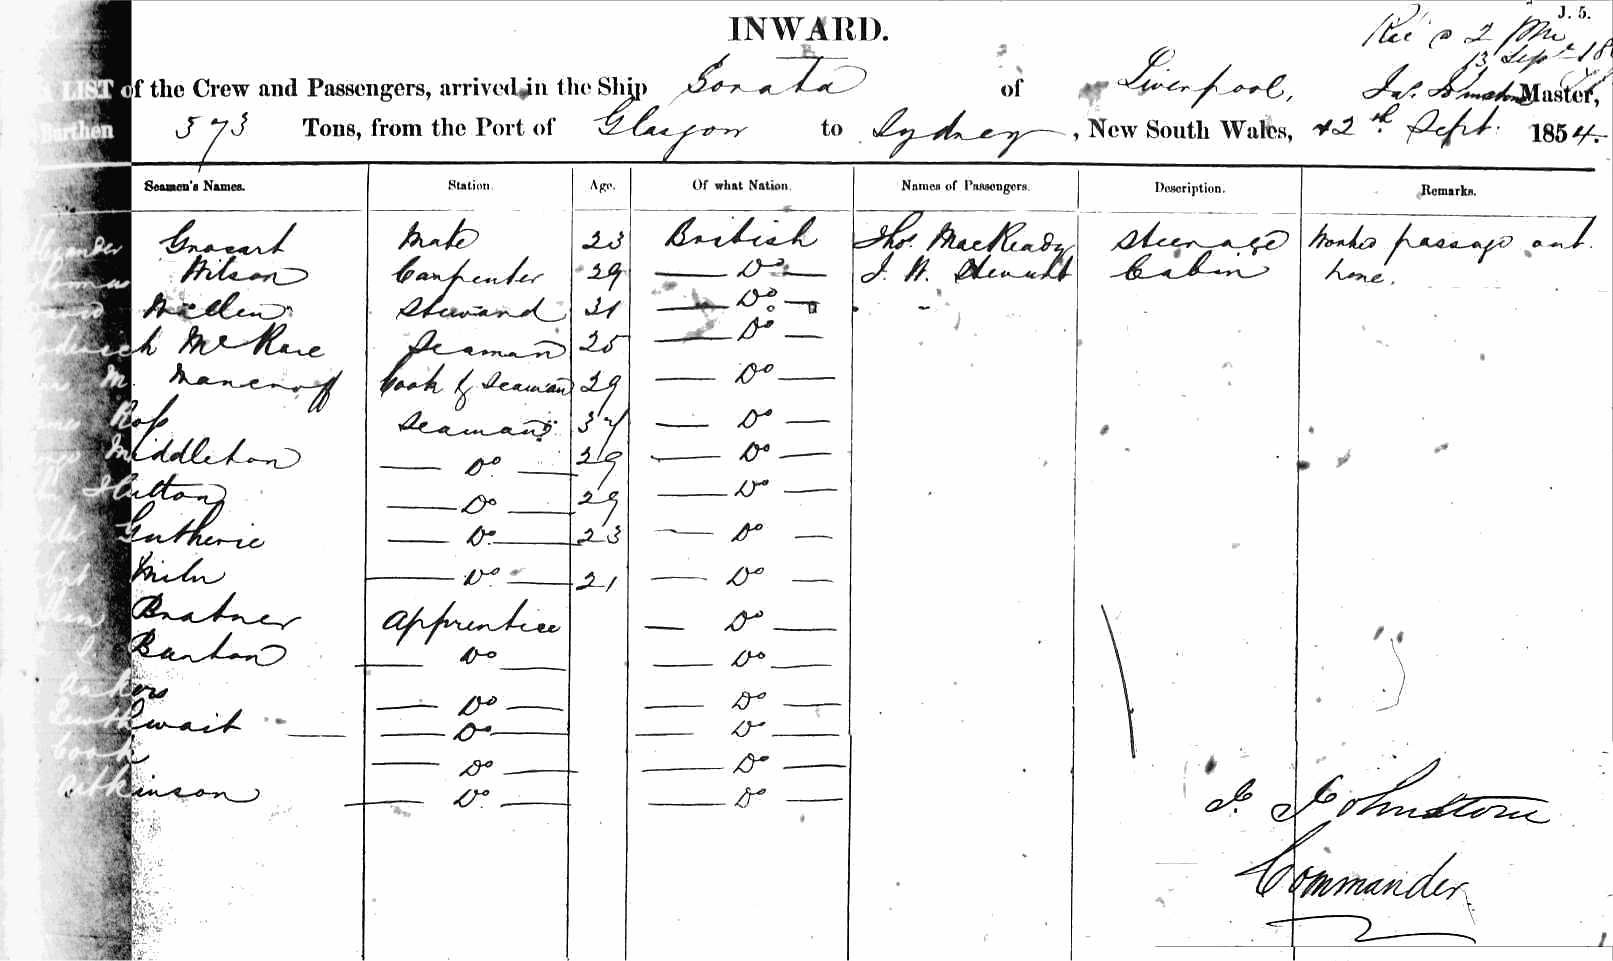 J. 5.
INWARD.
Rec @ 2 PM
13 Sept
LIST of the Crew and Passengers, arrived in the Ship Sonata of Liverpool, Jas. Johnstone Master,
Burthen 573 Tons, from the Port of Glasgow to Sydney, New South Wales, 12th Sept. 1854.
Seamen's Names. Station. Age. Of what Nation. Names of Passengers. Description. Remarks.
Grosart Mate 23 British Thos. MacReady Steerage Worked passage out
Thomas Wilson Carpenter 29 — Do — J. W. Stewart Cabin here.
Steward 31 — Do —
McRae Seaman 25 — Do —
M. Cook & Seaman 29 — Do —
James Ross Seaman 37 — Do —
Middleton — Do — 29 — Do —
Hutton — Do — 29 — Do —
Gutherie — Do — 23 — Do —
Miln — Do — 21 — Do —
Bratner Apprentice — Do —
Barton — Do — — Do —
Ankers — Do — — Do —
— Do — — Do —
Cook — Do — — Do —
Aitkinson — Do — — Do —
J. Johnstone
Commander